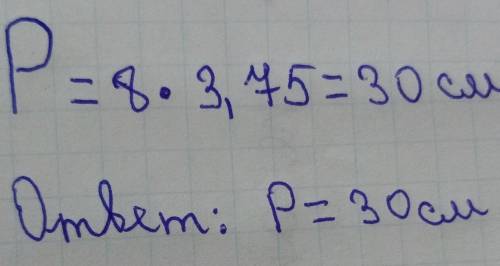 P = 8 · 3,75 = 30 см
Ответ: P = 30 см